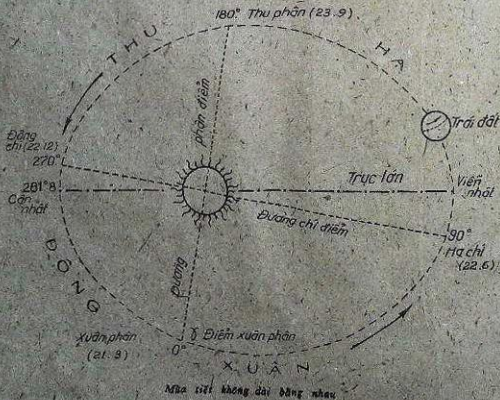 180° Thu phân (23.9)
THU
HẠ
Trái đất
phân điểm
Đông
chí (22.12)
270°
281°8
Cận
nhật
Trục lớn
Viễn
nhật
Đường chí điểm
90°
Hạ chí
(22.6)
ĐÔNG
Đường
Xuân phân
(21.3)
0°
γ Điểm xuân phân
XUÂN
Mùa tiết không dài bằng nhau